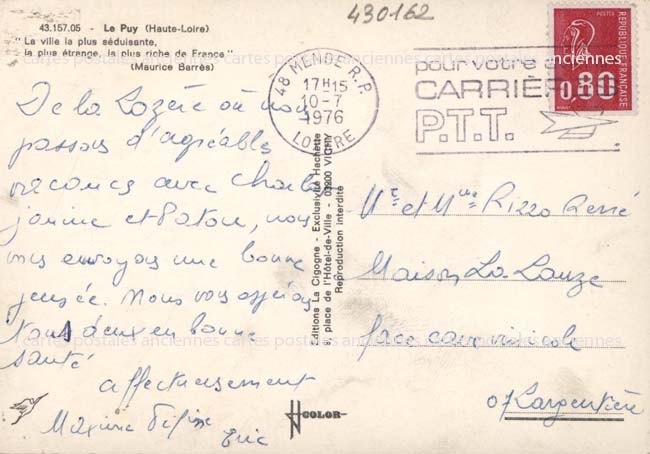 430162
43.157.05 - Le Puy (Haute-Loire)
"La ville la plus séduisante,
la plus étrange, la plus riche de France"
(Maurice Barrès)
48 MENDE R.P.
17H15
10-7
1976
LOZERE
pour votre
CARRIÈRE
P.T.T.
POSTES
REPUBLIQUE FRANÇAISE
0,80
De la Lozère où nous
passons d'agréables
vacances avec
janine et nous
vous envoyons une bonne
pensée. Nous vous espérons
Tous deux en bonne
santé
affectueusement
Maxime
Eric
Editions La Cigogne - Exclusivité Hachette
8, place de l'Hôtel-de-Ville - 03200 VICHY
Reproduction interdite
COLOR
Mr et Mme Rizzo René
Maison La Lauze
face cave vinicole
07 Largentière
cartes postales anciennes cartes postales anciennes cartes postales anciennes